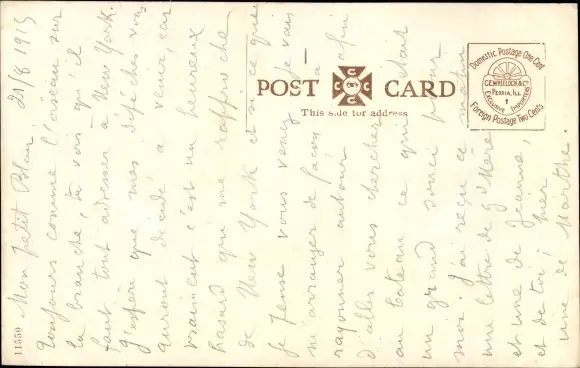 POST CARD
This side for address
Domestic Postage One Cent
C.E. WHEELOCK & Co.
PEORIA, ILL.
EXCLUSIVE IMPORTERS
Foreign Postage Two Cents
11550
21/8 1915
Mon petit
toujours comme l'oiseau sur
la branche, tu vois qu'il
faut tout adresser à New York.
J'espère que mes dépêches vous
auront décidé à venir, car
vraiment c'est un heureux
hasard qui me rapproche
de New York et une fois que
je pense vous venez je vais
m'arranger de façon à
rayonner autour afin
d'aller vous chercher
au bateau ce qui était
un grand souci pour
moi. J'ai reçu ce matin
une lettre de g'Mère
et une de Jeanne,
et de toi, hier
une de Marthe.